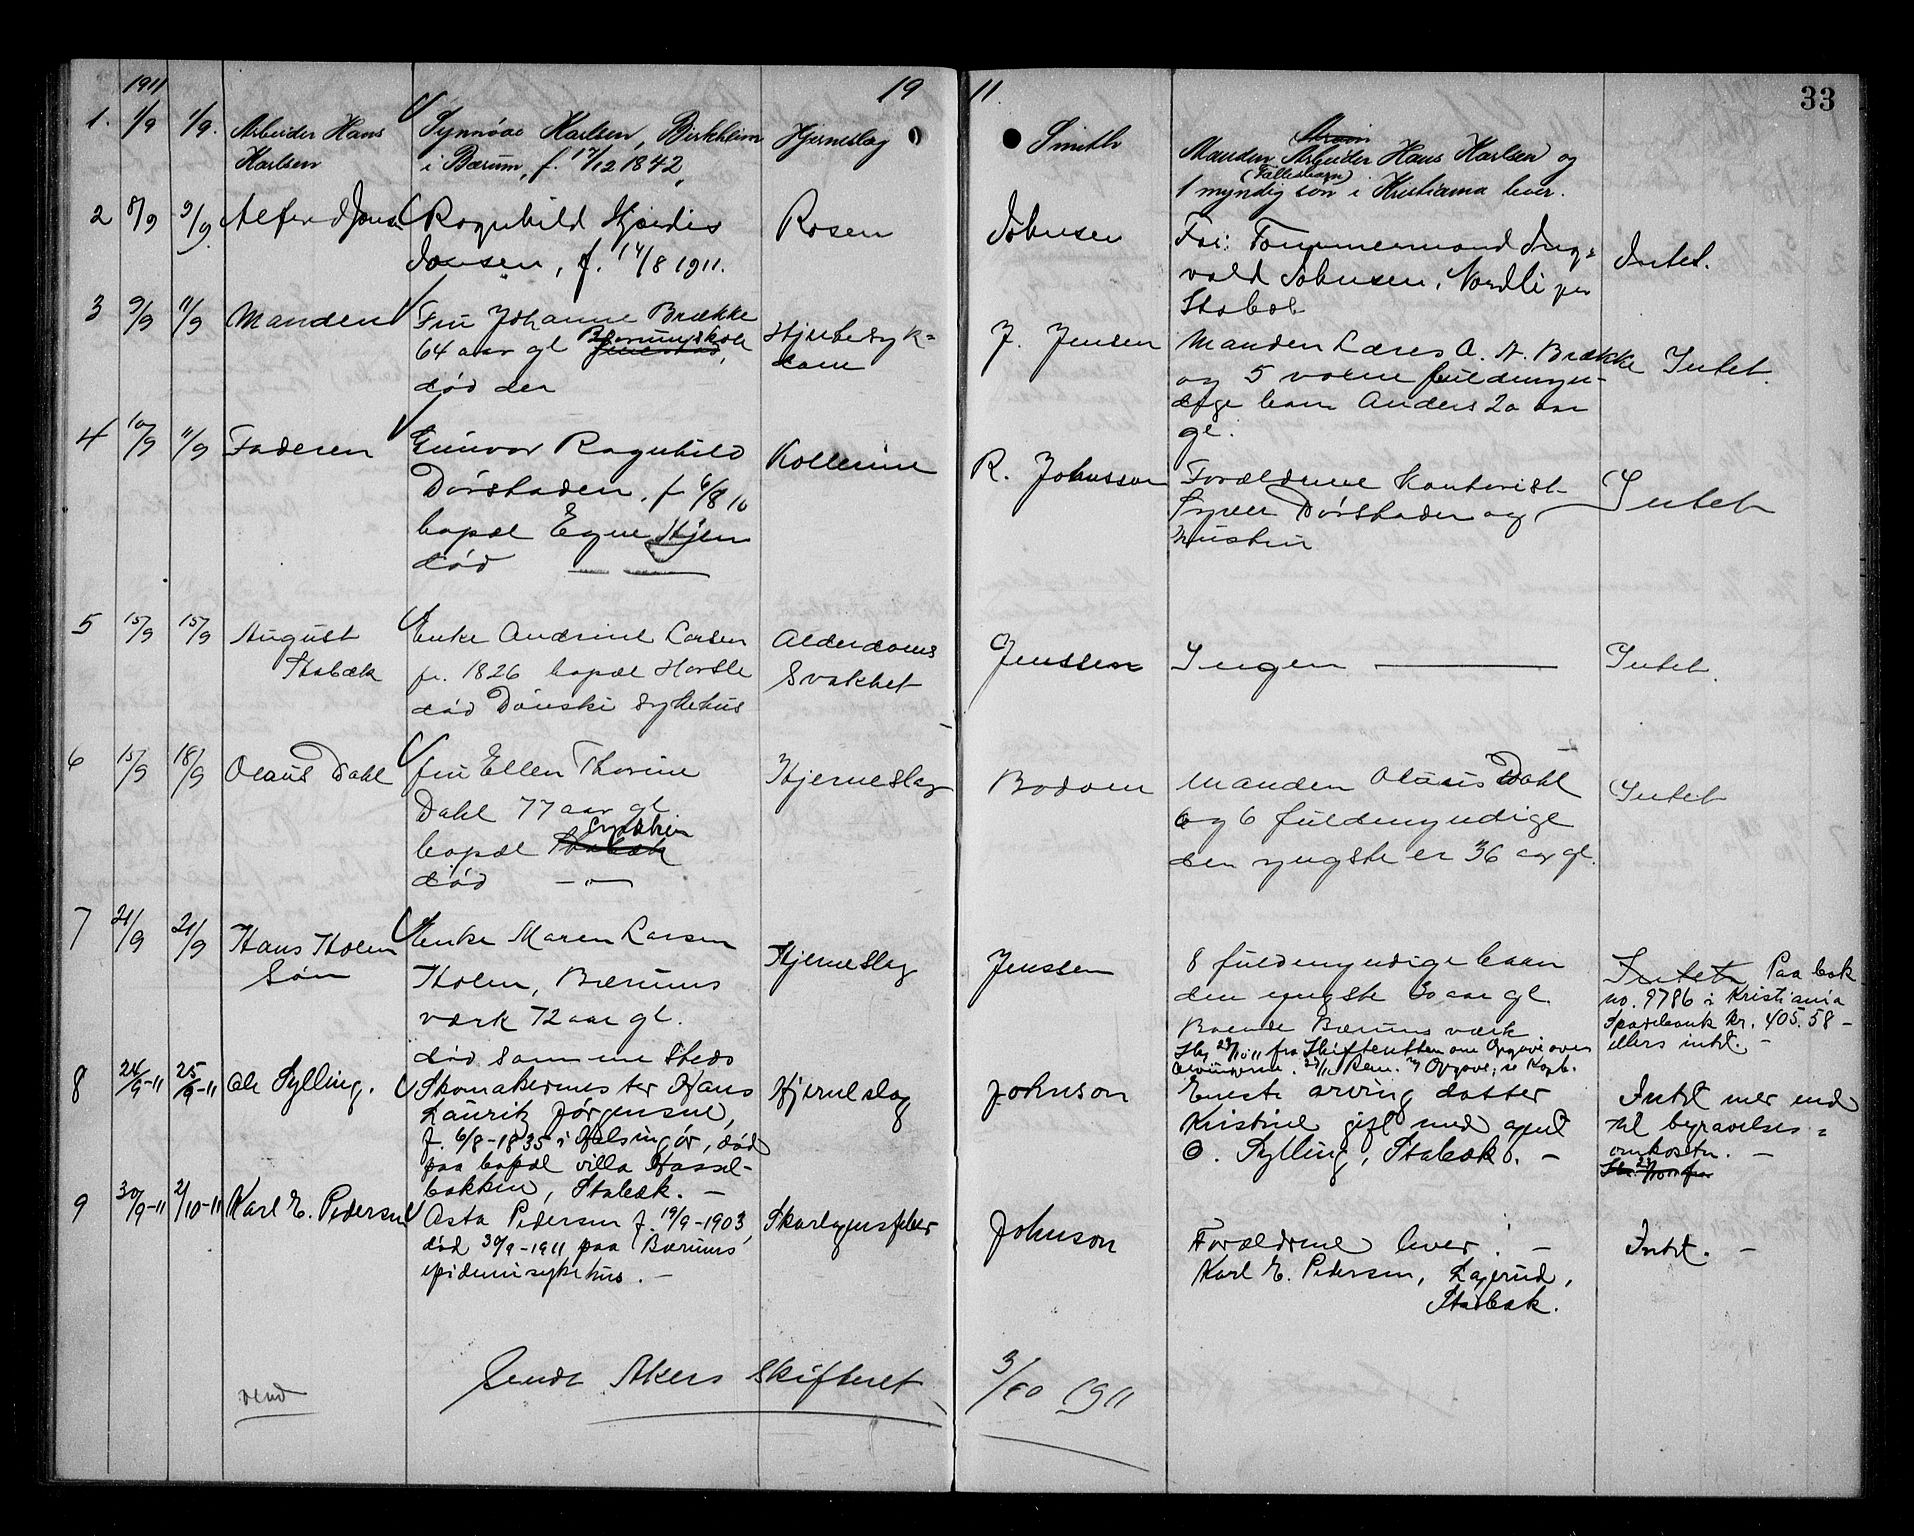 1911
19 11
33
1. 1/9 1/9. Arbeider Hans
Karlsen
Synnöve Karlsen, Birkheim
i Bærum, f. 17/12 1842,
Hjerneslag
Smith
Manden Arbeider Hans Karlsen og
(Fællesbarn)
1 myndig sön i Kristiania lever.
2 8/9 9/9. Alfred Jensen
Ragnhild Hjördis
Jensen, f. 14/8 1911.
Rosen
Johnsen
Far: Tømmermand Ing-
vald Johnsen, Nordli per
Stabæk
Intet.
3 9/9 11/9 Manden
Fru Johanne Brække
64 aar gl Bærumskole
død der
Hjertesyk-
dom
J. Jensen
Manden Lærer A. N. Brække
og 5 voksne fuldmyn-
dige barn Anders 20 aar
gl.
Intet.
4 10/9 11/9 Faderen
Gunvor Ragnhild
Dørstaden, f 6/8 10
bopæl Egne Hjem
død — „ —
Kollerine
R. Johnsson
Forældrene Kontorist
Dørstaden og
Hustru
Intet
5 15/9 15/9 August
Stabæk
Enke Andrine Larsen
f. 1826 bopæl Horsle
død Dønski Sykehus
Alderdoms
Svakhet
Jenssen
Ingen ———
Intet.
6 15/9 18/9 Olaus Dahl
fru Ellen Thorine
Dahl 77 aar gl
bopæl Stabæk
død — „ —
Hjerneslag
Bodom
Manden Olaus Dahl
og 6 fuldmyndige
den yngste er 36 aar gl.
Intet
7 21/9 21/9 Hans Holen
Søn
Enke Maren Larsen
Holen, Bærums
værk 72 aar gl.
død samme Steds
Hjerneslag
Jenssen
8 fuldmyndige barn
den yngste 30 aar gl.
Boende Bærums værk
fra Skifteretten om Opgave over
Arvingerne.
Intet Paa bok
no. 9786 i Kristiania
Sparebank kr. 405.58 -
ellers intet. -
8 24/9-11 25/9-11 Ole Sylling.
Skomakermester Hans
Lauritz Jörgensen,
f. 6/8-1835 i Helsingör, död
paa bopæl villa Hassel-
bakken, Stabæk. -
Hjerneslag
Johnson
Eneste arving datter
Kristine gift med agent
O. Sylling, Stabæk. -
Intet mer end
til begravelses-
omkostn. -
9 30/9-11 2/10-11 Karl E. Pedersen
Asta Pedersen f. 19/9-1903,
död 30/9-1911 paa Bærums
epidemisykehus. -
Skarlagensfeber
Johnson
Forældrene lever. -
Karl E. Pedersen, Lagerud,
Stabæk.
Intet. -
Sendt Akers Skifteret 3/10 1911